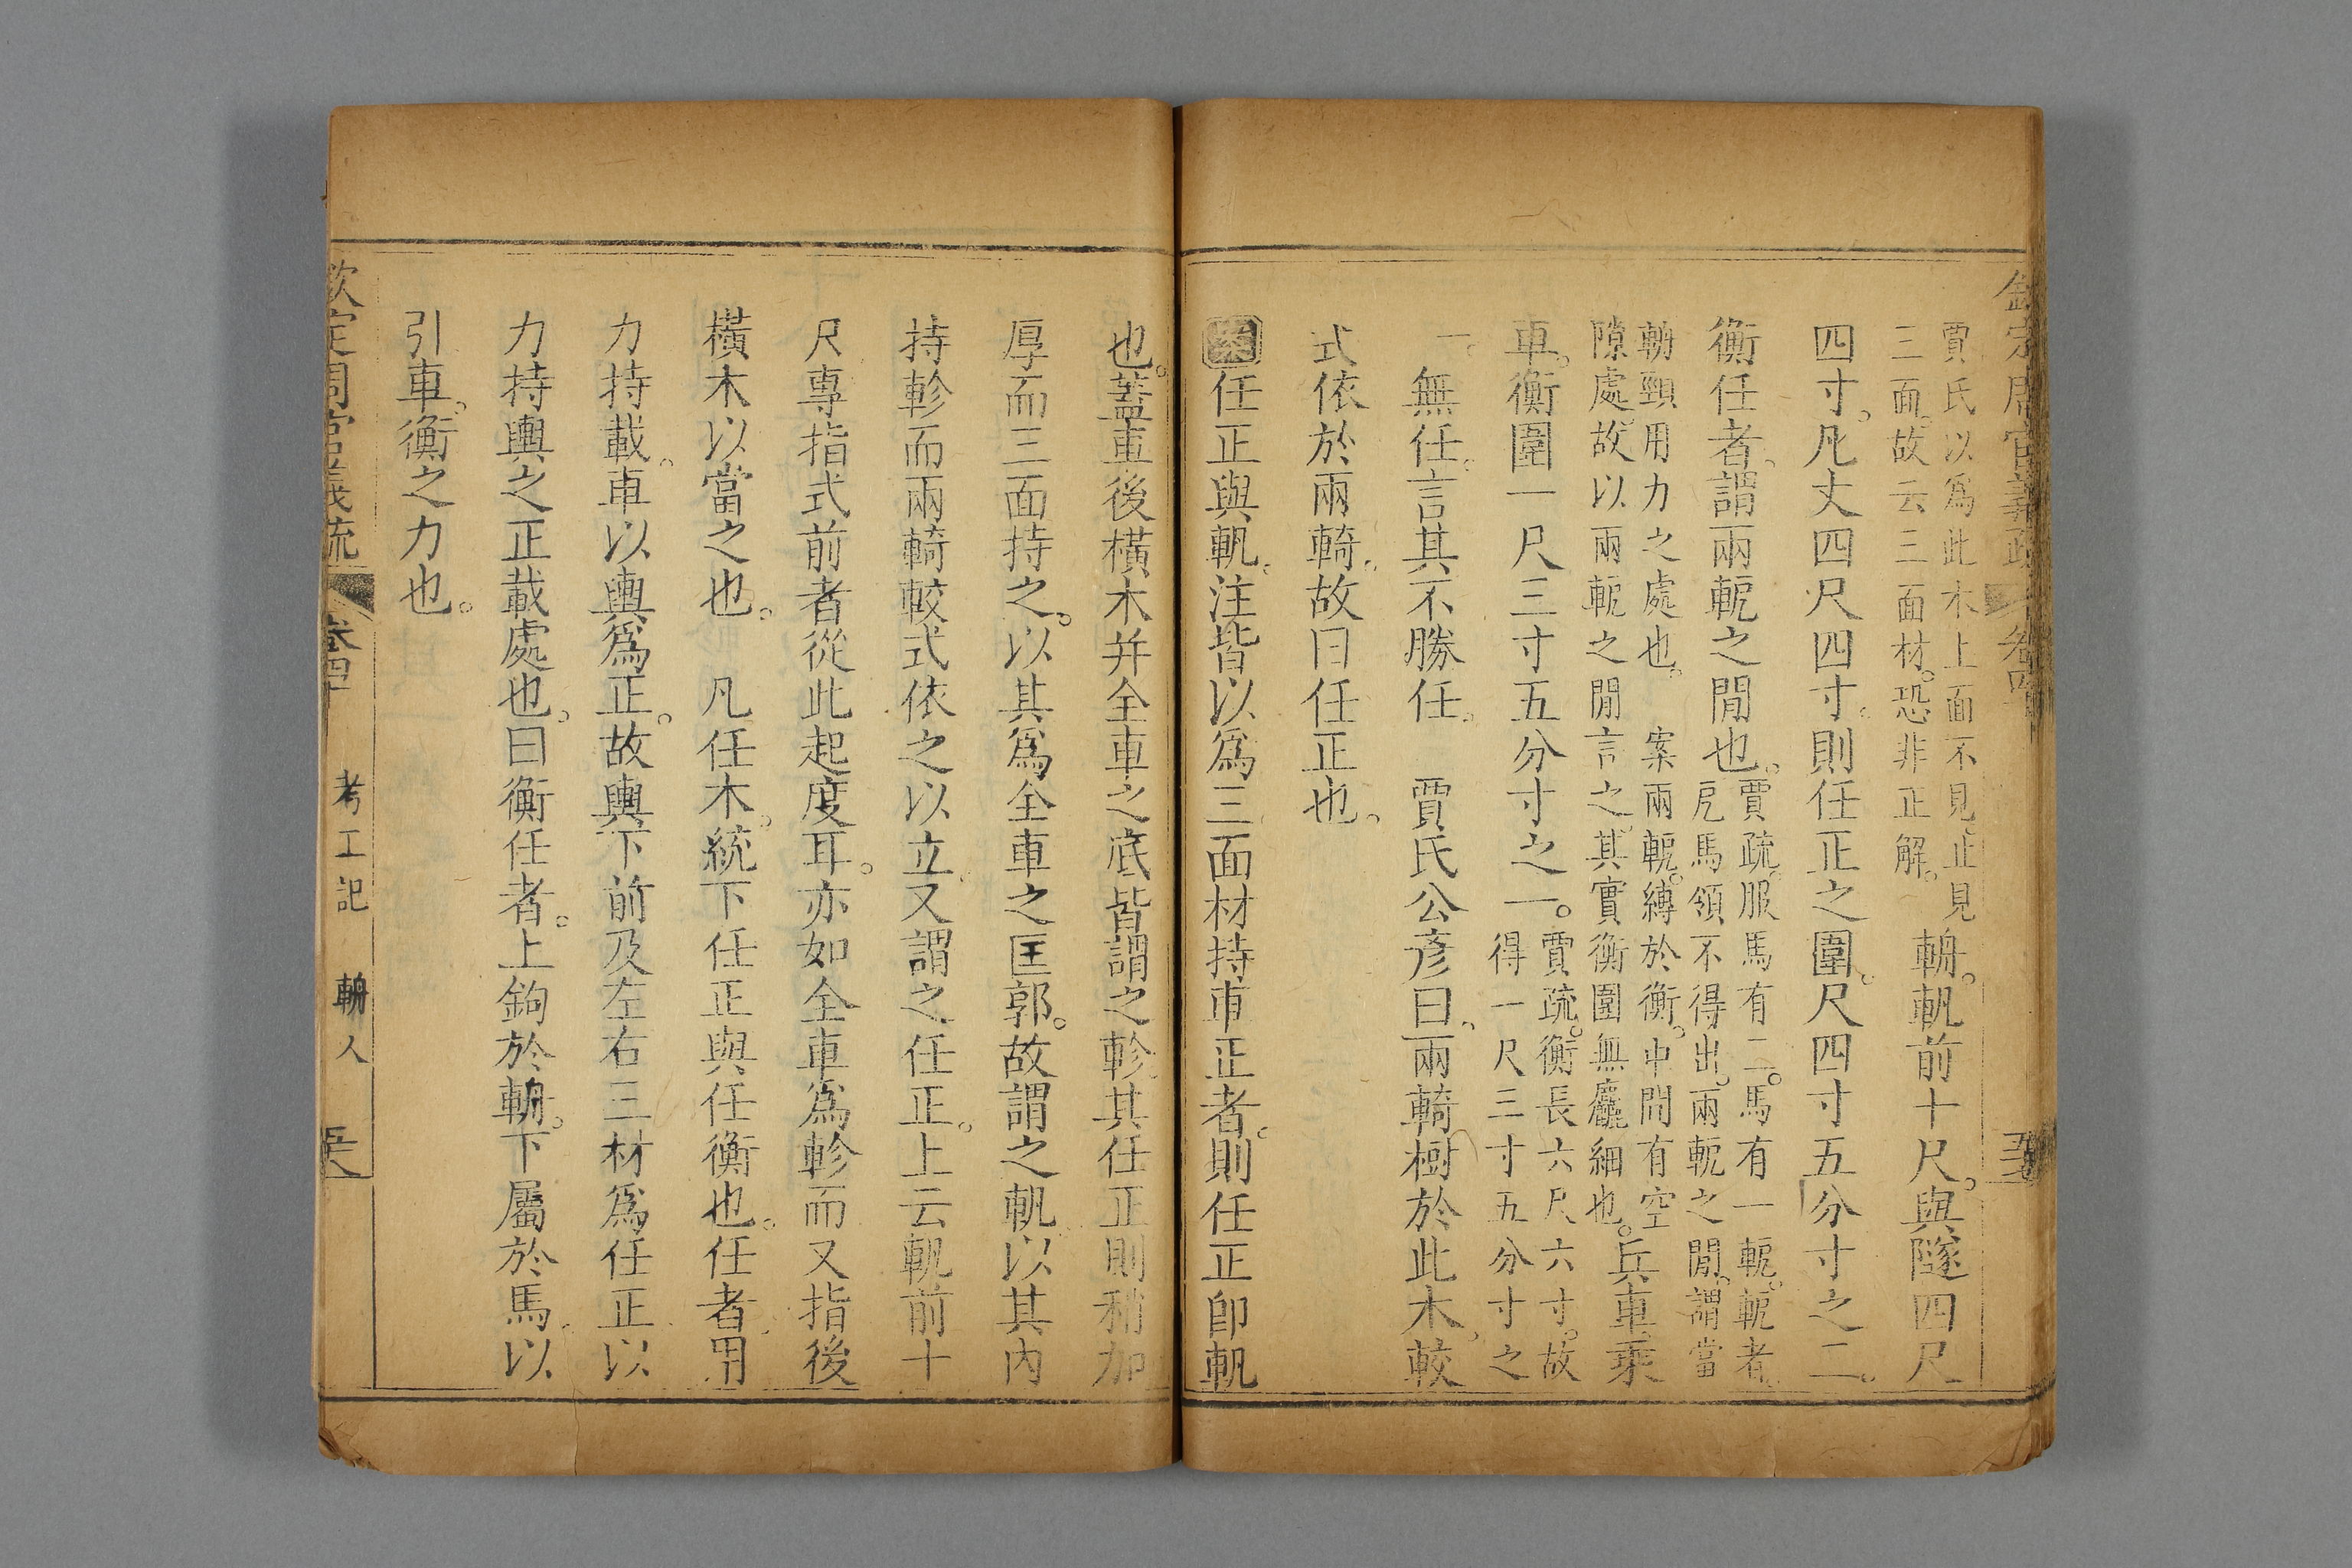 欽定周官義疏 卷四十
賈氏以爲此木上面不見止見
三面。故云三面材。恐非正解。
輈。軓前十尺。與隧四尺
四寸。凡丈四尺四寸。則任正之圍。尺四寸五分寸之二。
衡任者。謂兩軶之閒也。
賈疏。服馬有二。馬有一軶。軶者
厄馬領不得出。兩軶之閒。謂當
輈頸用力之處也。 案兩軶。縛於衡。中閒有空
隙處。故以兩軶之閒言之。其實衡圍無麤細也。
兵車乘
車。衡圍一尺三寸五分寸之一。
賈疏。衡長六尺六寸。故
得一尺三寸五分寸之
一。
無任。言其不勝任。 賈氏公彥曰。兩輢樹於此木。較
式依於兩輢。故曰任正也。
案任正與軓。注皆以爲三面材持車正者。則任正卽軓
也。蓋車後橫木并全車之底皆謂之軫。其任正則稍加
厚而三面持之。以其爲全車之匡郭。故謂之軓。以其內
持軫而兩輢較式依之以立。又謂之任正。上云軓前十
尺專指式前者從此起度耳。亦如全車爲軫而又指後
橫木以當之也。 凡任木。統下任正與任衡也。任者。用
力持載。車以輿爲正。故輿下前及左右三材爲任正。以
力持輿之正載處也。曰衡任者。上鉤於輈。下屬於馬。以
引車。衡之力也。
欽定周官義疏 卷四十 考工記 輈人